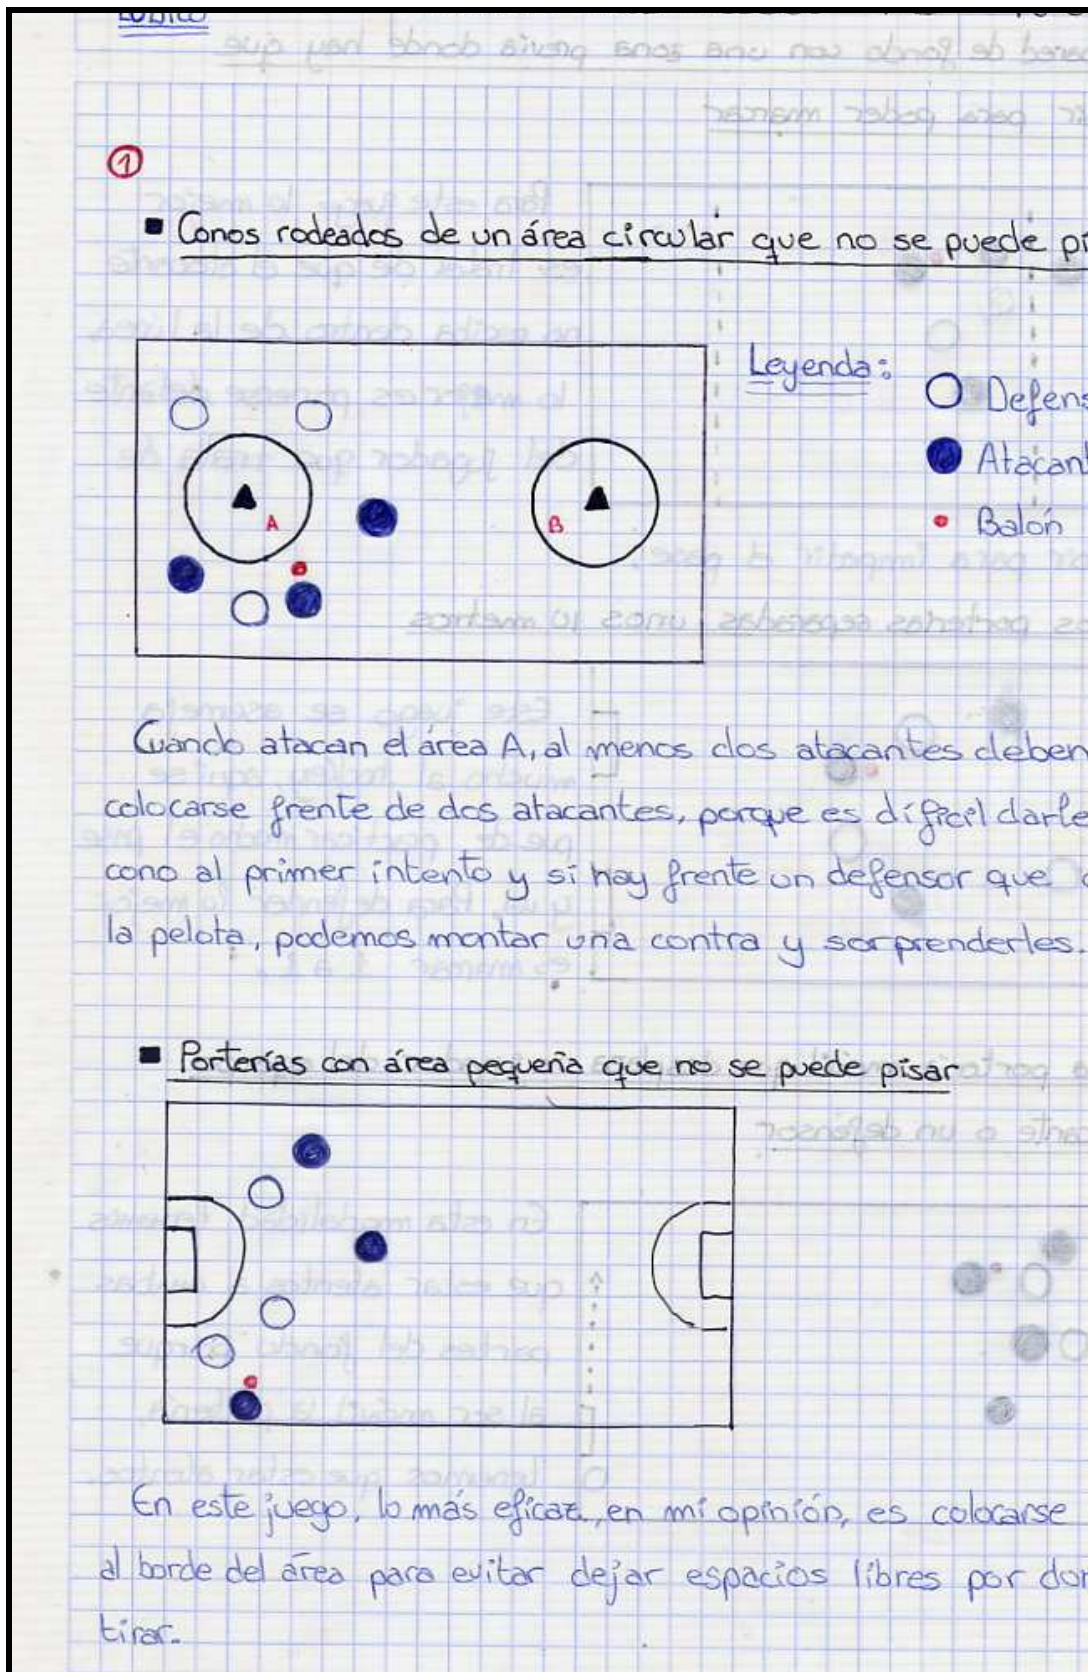 LÚDICO
1
■ Conos rodeados de un área circular que no se puede pi
Leyenda:
Defens
Atacant
Balón
A
B
Cuando atacan el área A, al menos dos atacantes deben
colocarse frente de dos atacantes, porque es difícil darle
cono al primer intento y si hay frente un defensor que
la pelota, podemos montar una contra y sorprenderles.
■ Porterías con área pequeña que no se puede pisar
En este juego, lo más eficaz, en mi opinión, es colocarse
al borde del área para evitar dejar espacios libres por don
tirar.